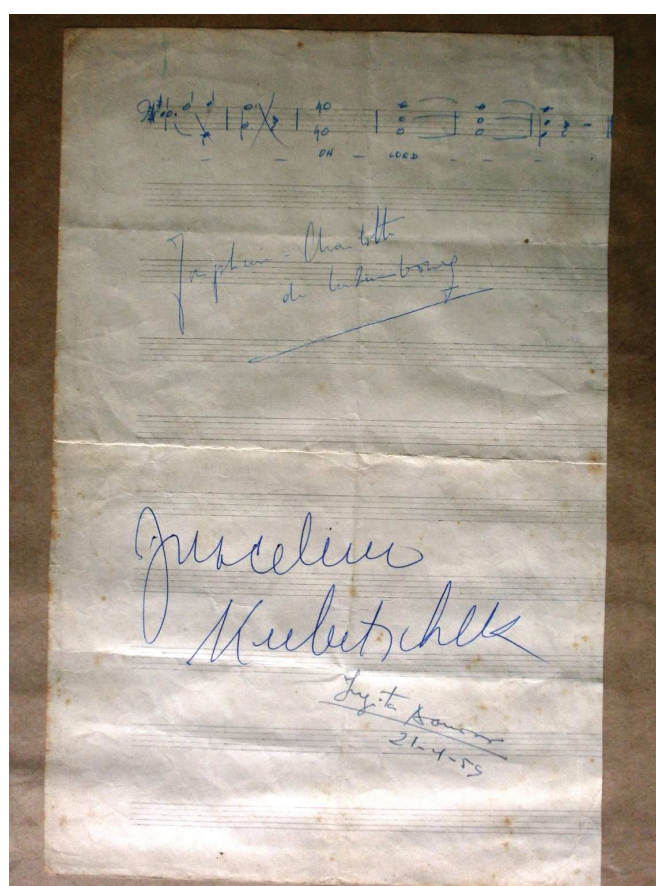 OH - LORD - - -
Joséphine-Charlotte
de Luxembourg
Juscelino
Kubitschek
21-4-59